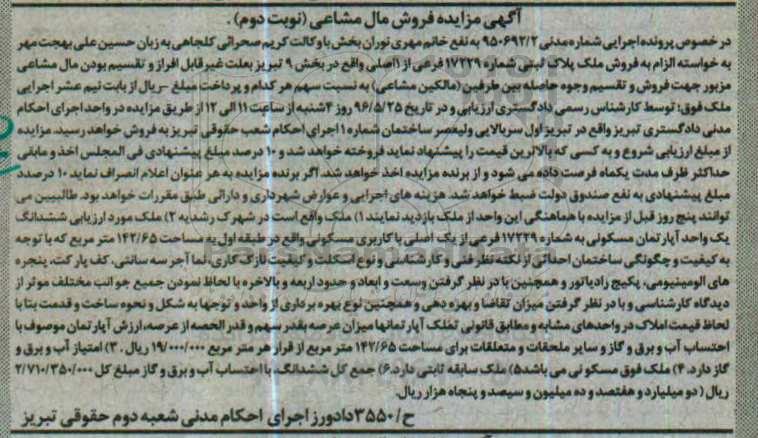 آگهی مزایده فروش مال مشاعی (نوبت دوم).
در خصوص پرونده اجرایی شماره مدنی ۹۵۰۶۹۲/۲ به نفع خانم مهری نوران بخش با وکالت کریم صحرائی کلجاهی به زبان حسین علی بهجت مهر
به خواسته الزام به فروش ملک پلاک ثبتی شماره ۱۷۲۲۹ فرعی از ۱اصلی واقع در بخش ۹ تبریز بعلت غیر قابل افراز و تقسیم بودن مال مشاعی
مزبور جهت فروش و تقسیم وجوه حاصله بین طرفین (مالکین مشاعی) به نسبت سهم هر کدام و پرداخت مبلغ -ریال از بابت نیم عشر اجرایی
ملک فوق: توسط کارشناس رسمی دادگستری ارزیابی و در تاریخ ۹۶/۵/۲۵ روز ۴شنبه از ساعت ۱۱ الی ۱۲ از طریق مزایده در واحد اجرای احکام
مدنی دادگستری تبریز واقع در تبریز اول سربالایی ولیعصر ساختمان شماره ۱ اجرای احکام شعب حقوقی تبریز به فروش خواهد رسید. مزایده
از مبلغ ارزیابی شروع و به کسی که بالاترین قیمت را پیشنهاد نماید فروخته خواهد شد و ۱۰ درصد مبلغ پیشنهادی فی المجلس اخذ و مابقی
حداکثر ظرف مدت یکماه فرصت داده می شود و از برنده مزایده اخذ خواهد شد. اگر برنده مزایده به هر عنوان اعلام انصراف نماید ۱۰ درصدد
مبلغ پیشنهادی به نفع صندوق دولت ضبط خواهد شد. هزینه های اجرایی و عوارض شهرداری و دارائی طبق مقررات خواهد بود. طالبیین می
توانند پنج روز قبل از مزایده با هماهنگی این واحد از ملک بازدید نمایند ۱) ملک واقع است در شهرک رشدیه ۲) ملک مورد ارزیابی ششدانگ
یک واحد آپارتمان مسکونی به شماره ۱۷۲۲۹ فرعی از یک اصلی با کاربری مسکونی واقع در طبقه اول به مساحت ۱۴۲/۶۵ متر مربع که با توجه
به کیفیت و چگونگی ساختمان احداثی از نکته نظر فنی و کارشناسی و نوع اسکلت و کیفیت نازک کاری، نما آجر سه سانتی، کف پارکت، پنجره
های الومینیومی، پکیج رادیاتور و همچنین با در نظر گرفتن وسعت و ابعاد و حدود اربعه و بالاخره با لحاظ نمودن جمیع جوانب مختلف موثر از
دیدگاه کارشناسی و با در نظر گرفتن میزان تقاضا و بهره دهی و همچنین نوع بهره برداری از واحد و توجها به شکل و نحوه ساخت و قدمت بنا با
لحاظ قیمت املاک در واحدهای مشابه و مطابق قانونی تملک آپارتمانها میزان عرصه بقدر سهم و قدر الحصه از عرصه، ارزش آپارتمان موصوف با
احتساب آب و برق و گاز و سایر ملحقات و متعلقات برای مساحت ۱۴۲/۶۵ متر مربع از قرار هر متر مربع ۱۹/۰۰۰/۰۰۰ ریال . ۳) امتیاز آب و برق و
گاز دارد. ۴) ملک فوق مسکونی می باشد ۵) ملک سابقه ثابتی دارد. ۶) جمع کل ششدانگ، با احتساب آب و برق و گاز مبلغ کل ۲/۷۱۰/۳۵۰/۰۰۰
ریال (دو میلیارد و هفتصد و ده میلیون و سیصد و پنجاه هزار ریال.
ح/۳۵۵۰ دادورز اجرای احکام مدنی شعبه دوم حقوقی تبریز